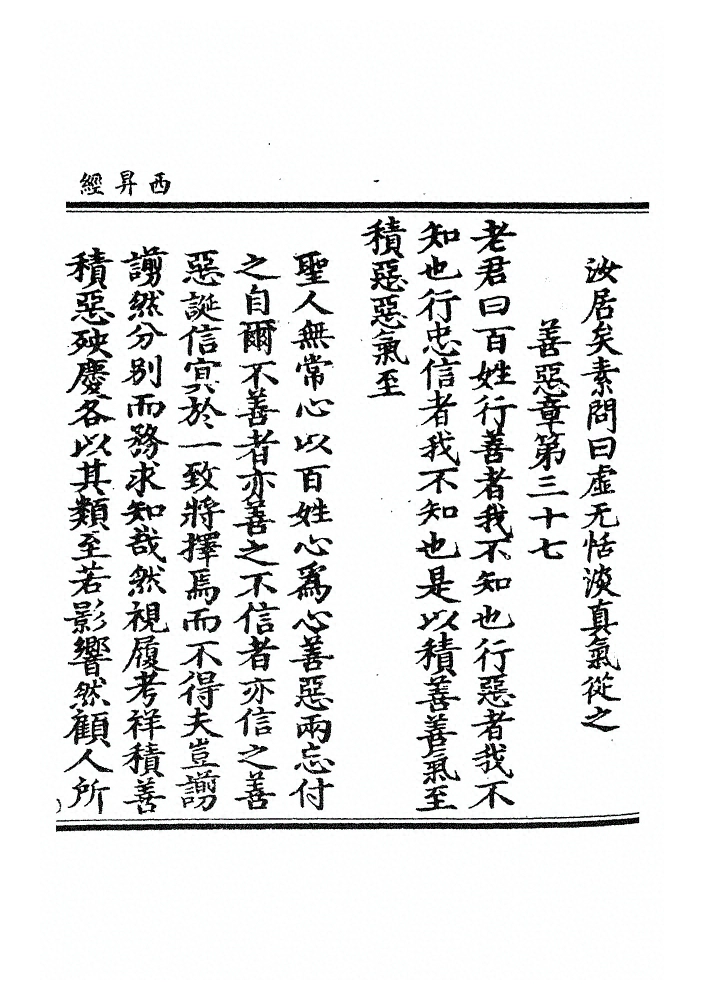 西昇經
汝居矣素問曰虛无恬淡真氣從之
善惡章第三十七
老君曰百姓行善者我不知也行惡者我不
知也行忠信者我不知也是以積善善氣至
積惡惡氣至
聖人無常心以百姓心為心善惡兩忘付
之自爾不善者亦善之不信者亦信之善
惡誕信寘於一致將擇焉而不得夫豈謭
謭然分別而務求知哉然視履考祥積善
積惡殃慶各以其類至若影響然顧人所